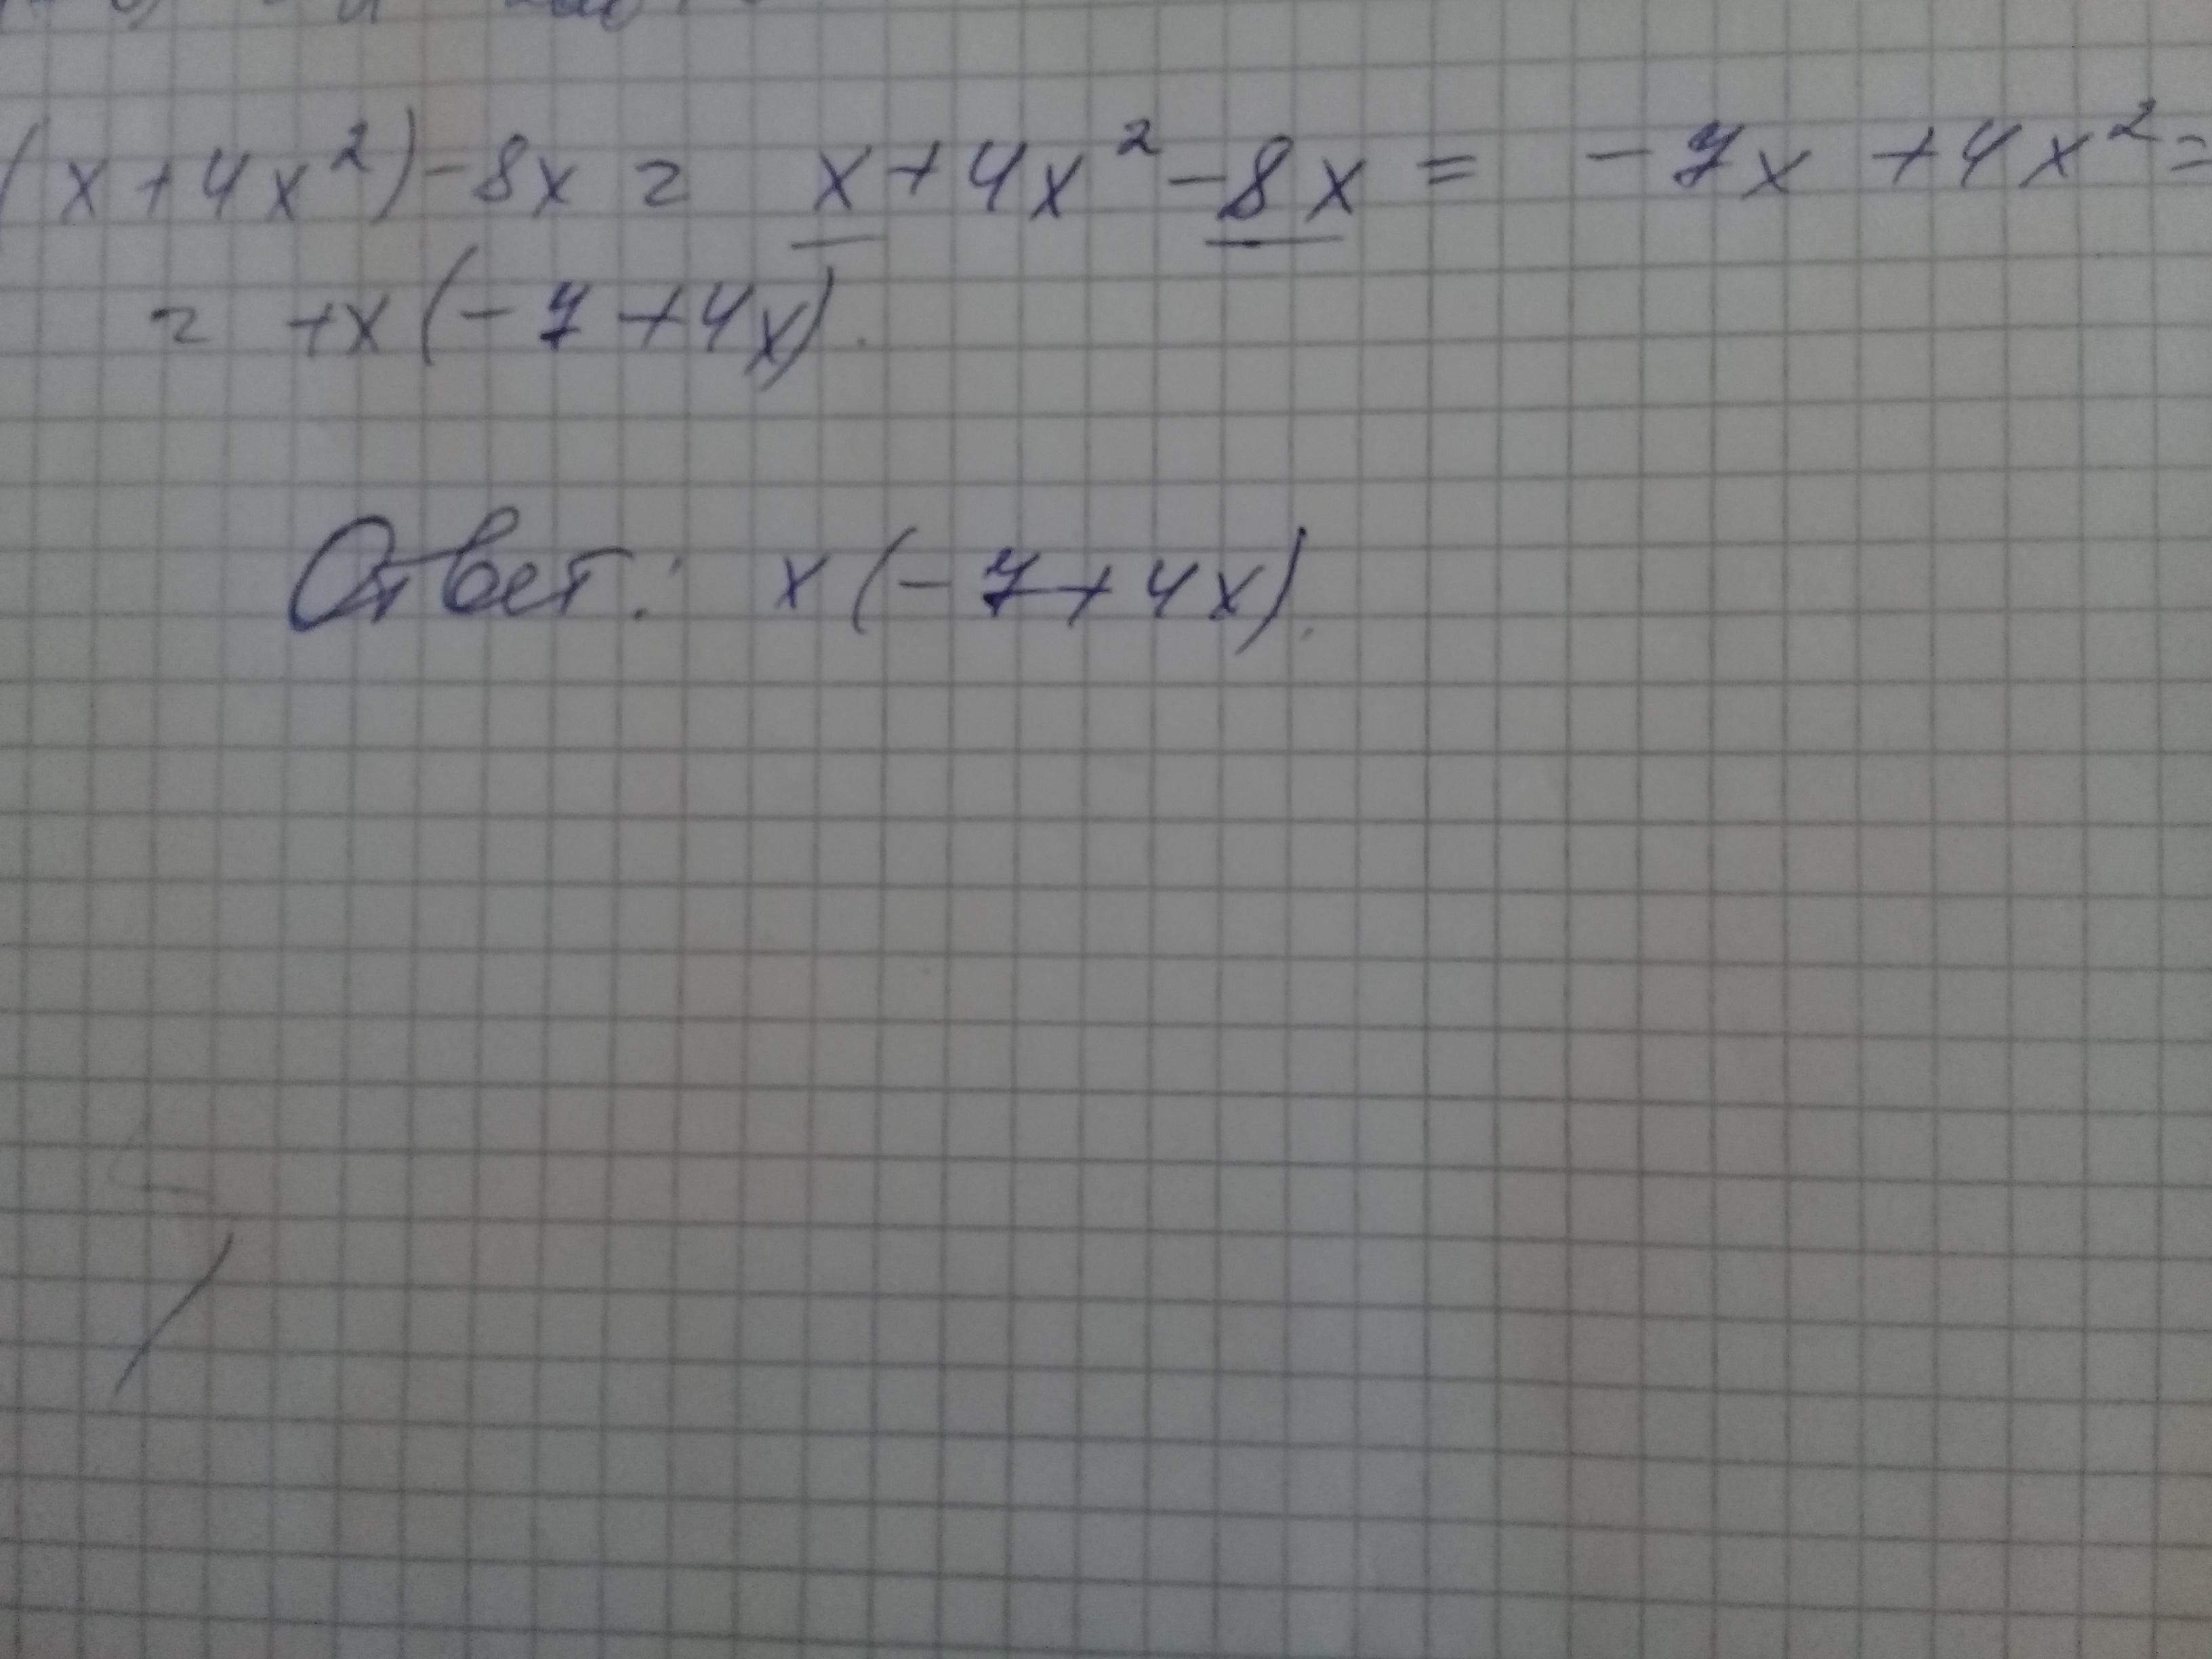 (x+4x²)-8x = x+4x²-8x = -7x+4x²=
= +x(-7+4x).
Ответ: x(-7+4x).